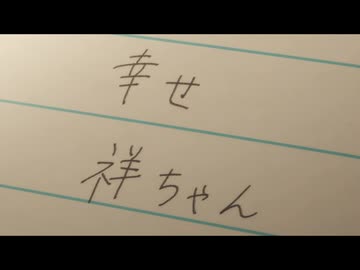 幸せ
祥ちゃん